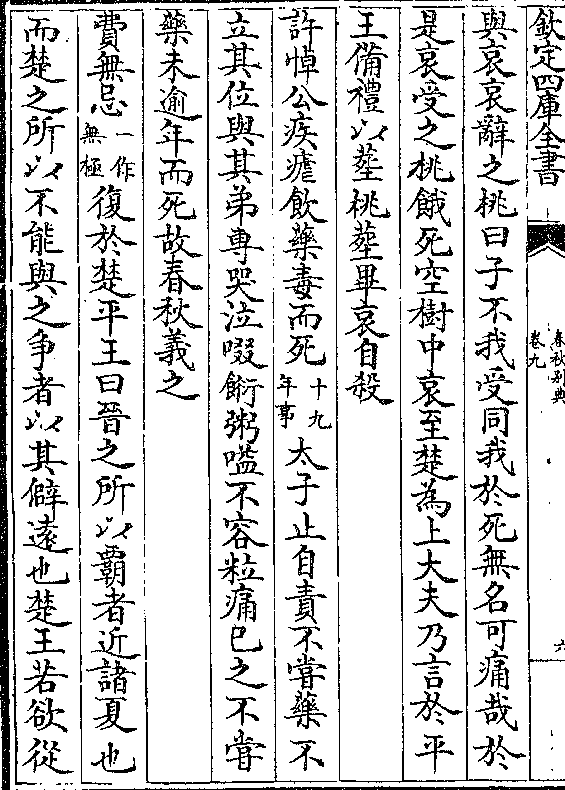 欽定四庫全書
春秋别典
卷九
六
與哀哀辭之桃曰子不我受同我於死無名可痛哉於
是哀受之桃餓死空樹中哀至楚為上大夫乃言於平
王備禮以塟桃塟畢哀自殺
許悼公疾瘧飲藥毒而死十九年事太子止自責不嘗藥不
立其位與其弟専哭泣啜䭈粥嗌不容粒痛已之不嘗
藥未逾年而死故春秋義之
費無忌一作無極復於楚平王曰晉之所以霸者近諸夏也
而楚之所以不能與之争者以其僻逺也楚王若欲從